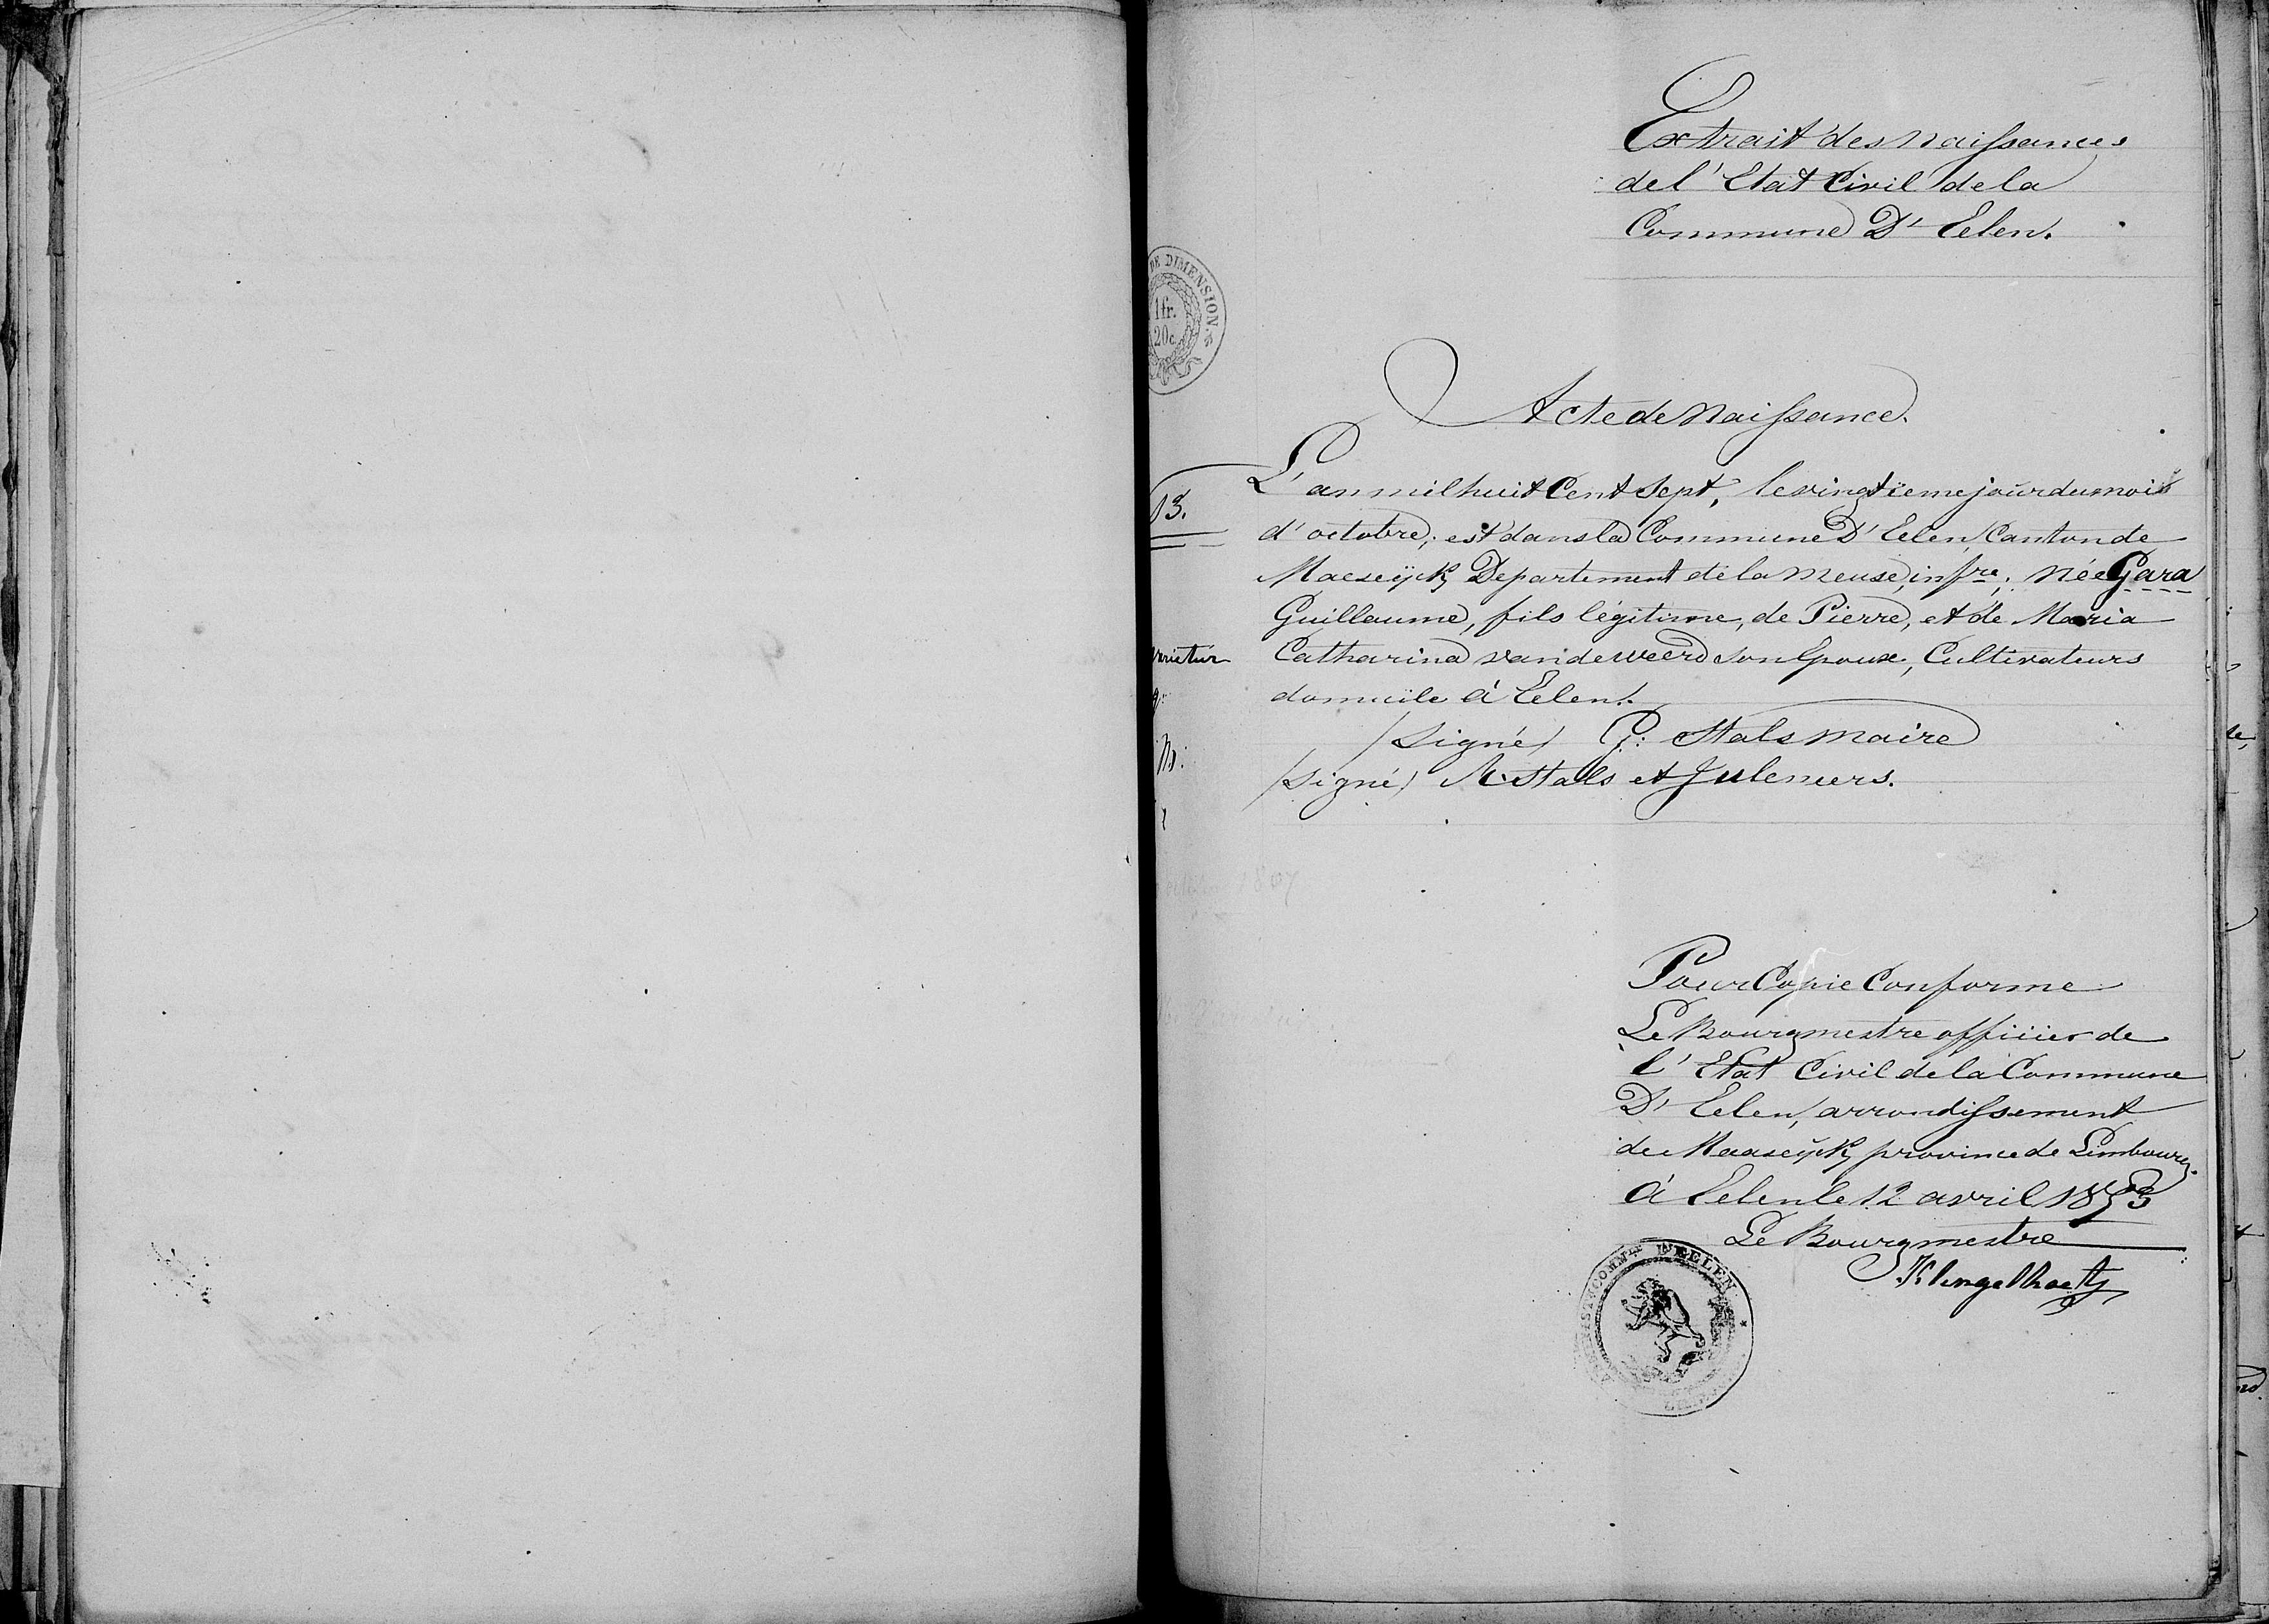 Extrait des naissances
de l'Etat Civil de la
Commune D'Eelen.
DE DIMENSION.
1fr.
20c.
Acte de Naissance.
13.
L'an mil huit Cent Sept, le vingtieme jour du mois
d'octobre, est dans la Commune D'Eelen, Canton de
Maeseÿk, Departement de la Meuse, infre; née Gara
varietur
Guillaume, fils légitime, de Pierre, et de Maria
Catharina vandeweerd son Epouse, Cultivateurs
domicile à Eelen.
/Signé/ G: Stals maire
/Signé/ A. Stals et Juleneers.
1807
Pour Copie Conforme
Le Bourgmestre officier de
l'Etat Civil de la Commune
D'Eelen, arrondissement
de Maaseÿk, province de Limbourg.
à Eelen le 12 avril 1853
Le Bourgmestre
Klingelhoets
D'EELEN